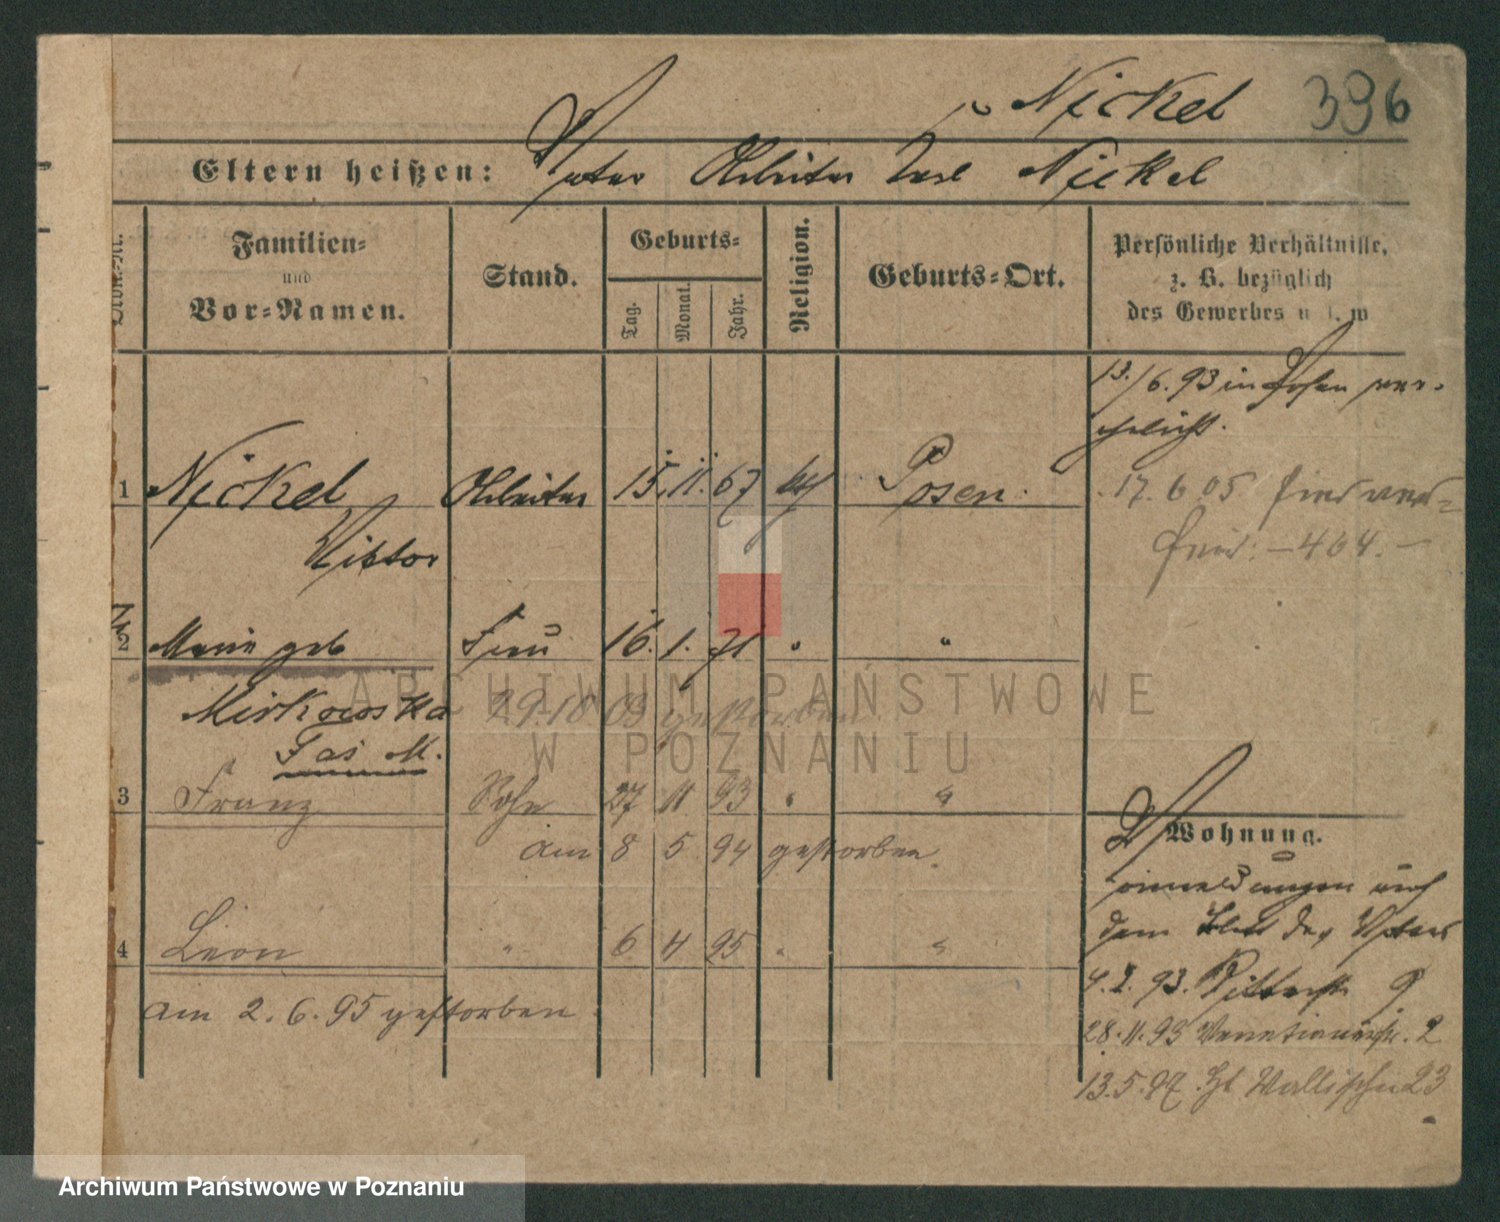 Nickel 396
Eltern heißen: Vater Arbeiter Carl Nickel
Familien-
und
Vor-Namen.
Stand.
Geburts-
Tag.
Monat.
Jahr.
Religion.
Geburts-Ort.
Persönliche Verhältnisse,
z. B. bezüglich
des Gewerbes u. s. w
13./6.93 in Posen ver-
ehelicht.
1 Nickel Arbeiter 15. 11. 67 Posen.
Viktor
17. 6 05
- 464. -
2 Marie geb Frau 16. 1. 71 " "
Mirkowska 29.10 03 gestorben
3 Franz Sohn 27 11 93 " "
am 8 5 94 gestorben.
4 Leon " 6 4 95 " "
am 2. 6. 95 gestorben
Wohnung.
dem Blatt des Vaters
4.2. 93. Ritterstr. 9
28.11.93 Venetianerstr. 2
13.5.97. Wallischei 23
ARCHIWUM PAŃSTWOWE
W POZNANIU
Archiwum Państwowe w Poznaniu